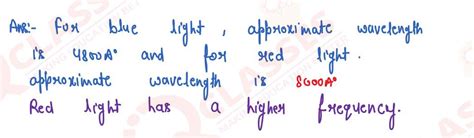 Ans:- For blue light, approximate wavelength
is 4800A° and for red light.
approximate wavelength is 8000A°
Red light has a higher frequency.